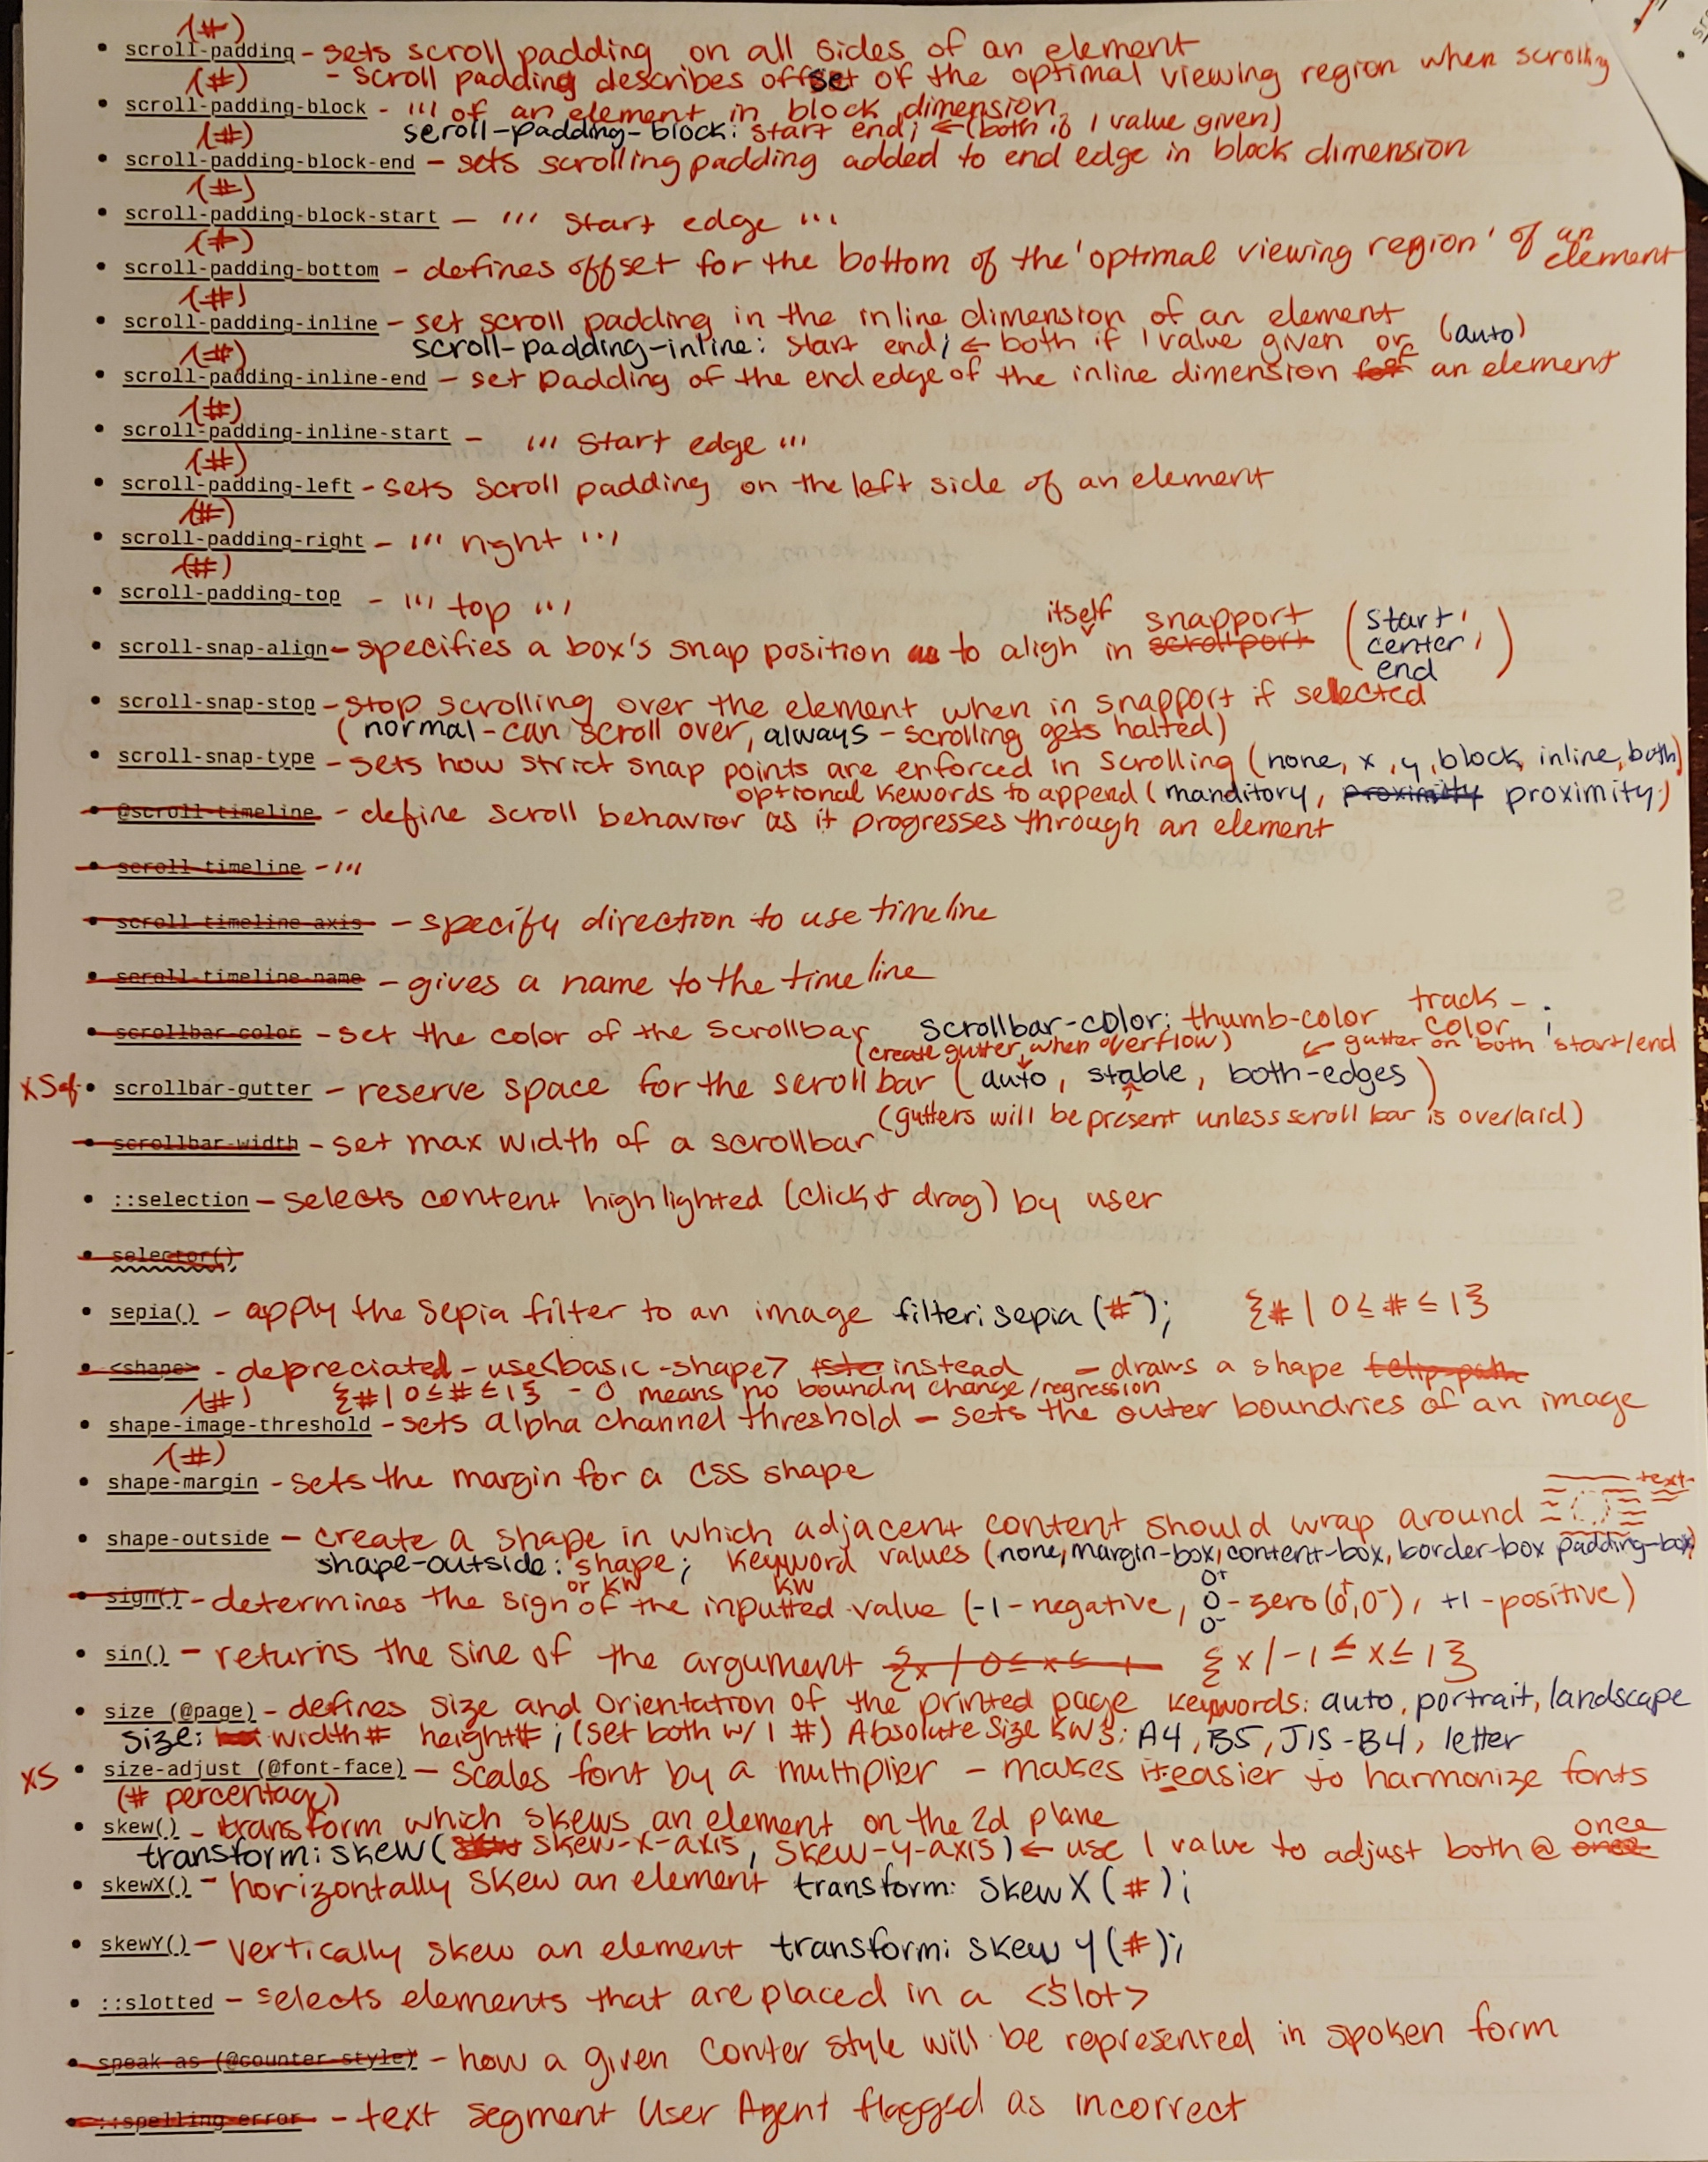 (#)
• scroll-padding - sets scroll padding on all sides of an element
(#) - scroll padding describes offset of the optimal viewing region when scrolling
• scroll-padding-block - ''' of an element in block dimension
(#) scroll-padding-block: start end; ← (both if 1 value given)
• scroll-padding-block-end - sets scrolling padding added to end edge in block dimension
(#)
• scroll-padding-block-start - ''' start edge '''
(#)
• scroll-padding-bottom - defines offset for the bottom of the 'optimal viewing region' of an element
(#)
• scroll-padding-inline - set scroll padding in the inline dimension of an element
(#) scroll-padding-inline: start end; ← both if 1 value given or (auto)
• scroll-padding-inline-end - set padding of the end edge of the inline dimension of an element
(#)
• scroll-padding-inline-start - ''' start edge '''
(#)
• scroll-padding-left - sets scroll padding on the left side of an element
(#)
• scroll-padding-right - ''' right '''
(#)
• scroll-padding-top - ''' top '''
• scroll-snap-align - specifies a box's snap position as to align itself in scrollport snapport (start, center, end)
• scroll-snap-stop - stop scrolling over the element when in snapport if selected
(normal - can scroll over, always - scrolling gets halted)
• scroll-snap-type - sets how strict snap points are enforced in scrolling (none, x, y, block, inline, both)
optional kewords to append (manditory, proximity proximity)
• @scroll-timeline - define scroll behavior as it progresses through an element
• scroll-timeline - '''
• scroll-timeline-axis - specify direction to use timeline
• scroll-timeline-name - gives a name to the timeline
• scrollbar-color - set the color of the scrollbar scrollbar-color: thumb-color track-color;
(create gutter when overflow) ← gutter on both start/end
• scrollbar-gutter - reserve space for the scrollbar (auto, stable, both-edges)
(gutters will be present unless scroll bar is overlaid)
• scrollbar-width - set max width of a scrollbar
• ::selection - selects content highlighted (click & drag) by user
• selector()
• sepia() - apply the sepia filter to an image filter: sepia(#); {# | 0 ≤ # ≤ 1}
• <shape> - depreciated - use <basic-shape> instead - draws a shape
(#) {# | 0 ≤ # ≤ 1} - 0 means no boundry change/regression
• shape-image-threshold - sets alpha channel threshold - sets the outer boundries of an image
(#)
• shape-margin - sets the margin for a CSS shape
text
• shape-outside - create a shape in which adjacent content should wrap around
shape-outside: shape; keyword values (none, margin-box, content-box, border-box padding-box)
or KW KW
• sign() - determines the sign of the inputted value (-1 - negative, 0⁺ 0 0⁻ - zero (0⁺, 0⁻), +1 - positive)
• sin() - returns the sine of the argument {x | 0 ≤ x ≤ 1 {x | -1 ≤ x ≤ 1}
• size (@page) - defines size and orientation of the printed page keywords: auto, portrait, landscape
size: width# height#; (set both w/ 1 #) Absolute Size KWs: A4, B5, JIS-B4, letter
XS • size-adjust (@font-face) - scales font by a multiplier - makes it easier to harmonize fonts
(# percentage)
• skew() - transform which skews an element on the 2d plane
transform: skew(skew-x-axis, skew-y-axis) ← use 1 value to adjust both @ once once
• skewX() - horizontally skew an element transform: skewX(#);
• skewY() - vertically skew an element transform: skewY(#);
• ::slotted - selects elements that are placed in a <slot>
• speak-as (@counter-style) - how a given Conter style will be represented in spoken form
• ::spelling-error - text segment User Agent flagged as incorrect